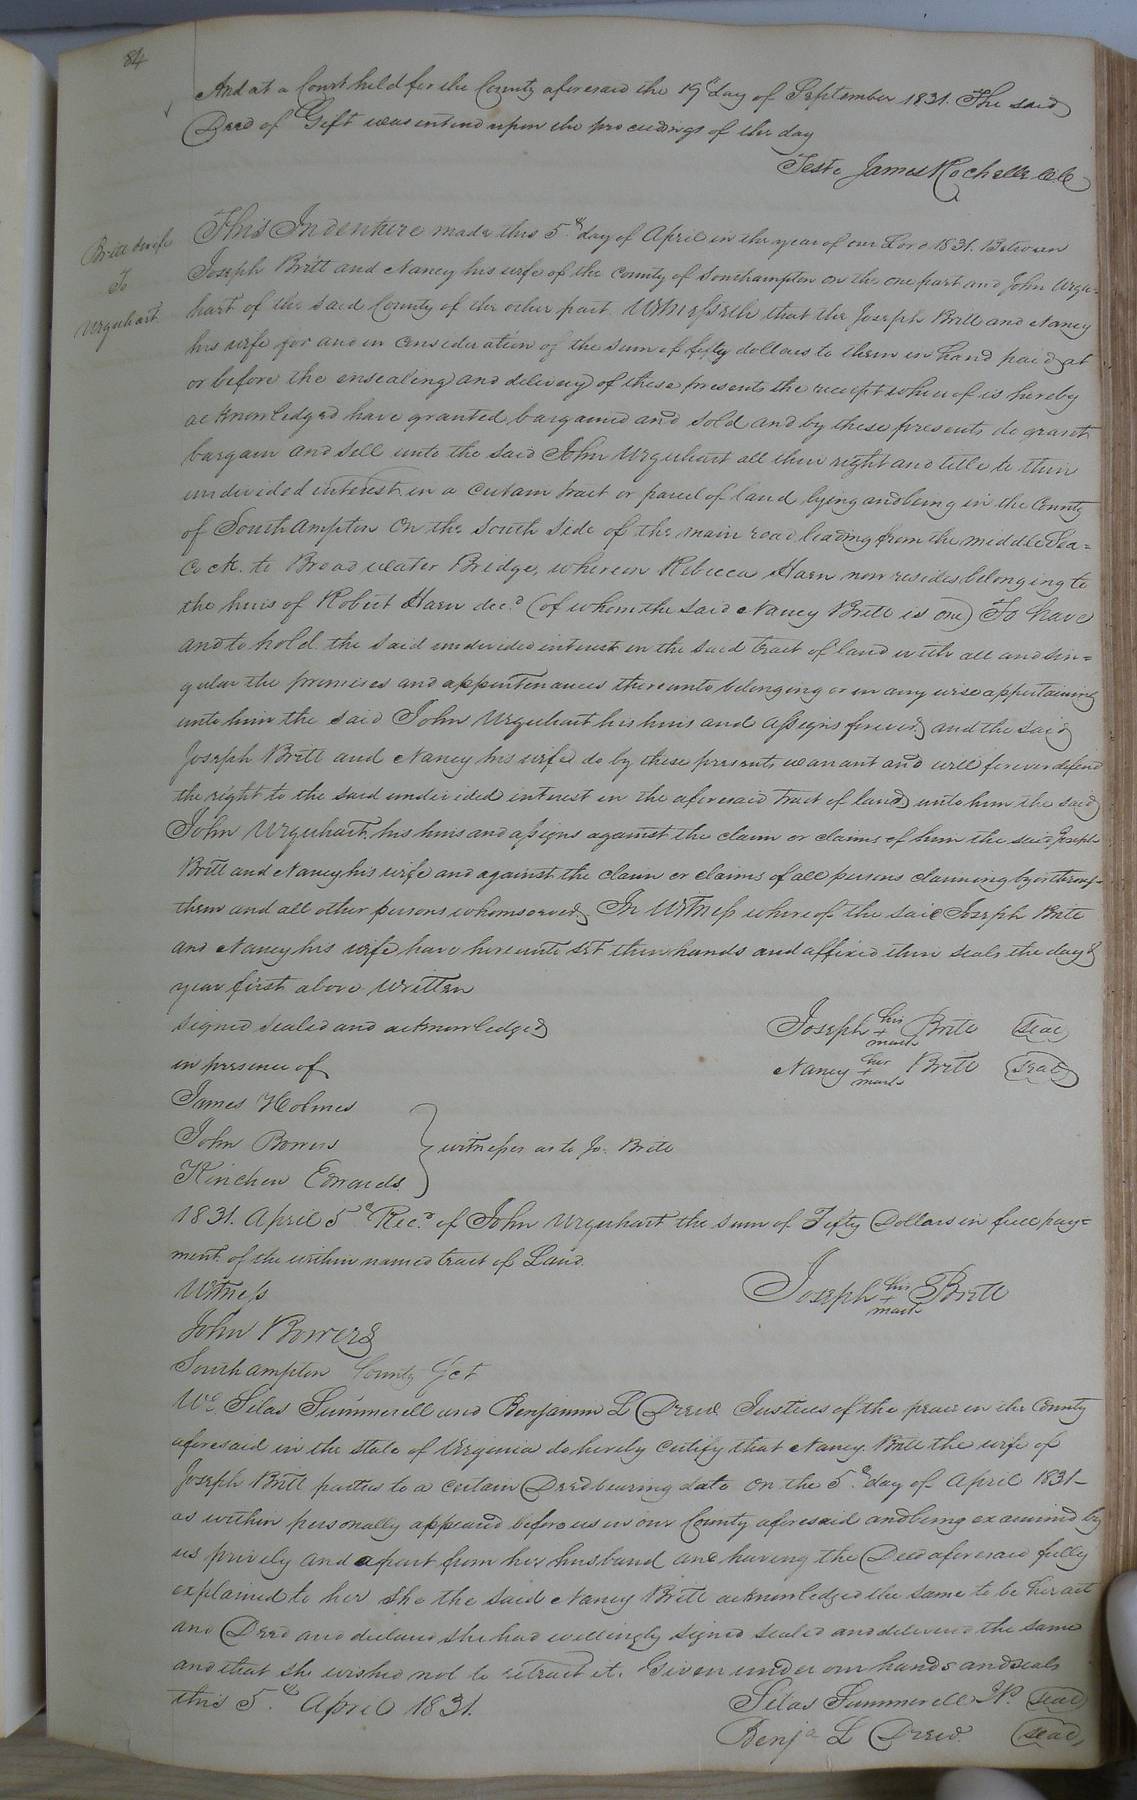 84
And at a Court held for the County aforesaid the 19th day of September 1831. The said
Deed of Gift was entend upon the proceedings of the day
Teste James Rochelle C.C
Britt & wife
To
Urquhart
This Indenture made this 5th day of April in the year of our Lord 1831. Between
Joseph Britt and Nancy his wife of the County of Southampton on the one part and John Urqu=
hart of the said County of the other part Witnesseth that the Joseph Britt and Nancy
his wife for and in consideration of the sum of fifty dollars to them in hand paid at
or before the ensealing and delivery of these presents the receipt whereof is hereby
acknowledged have granted bargained and sold and by these presents do grant
bargain and sell unto the said John Urquhart all their right and title to their
undivided interest in a certain tract or parcel of land lying and being in the County
of Southampton On the South side of the main road leading from the middle Sea=
Cock to Broad water Bridge, whereon Rebecca Harn now resides belonging to
the heirs of Robert Harn decd (of whom the said Nancy Britt is one) To have
and to hold the said undivided interest in the said tract of land with all and sin=
gular the premises and appurtenances thereunto belonging or in any wise appertaining
unto him the said John Urquhart his heirs and assigns forever and the said
Joseph Britt and Nancy his wife do by these presents warrant and will forever defend
the right to the said undivided interest in the aforesaid tract of land unto him the said
John Urquhart his heirs and assigns against the claim or claims of him the said Joseph
Britt and Nancy his wife and against the claim or claims of all persons claiming by or through
them and all other persons whomsoever In Witness whereof the said Joseph Britt
and Nancy his wife have hereunto set their hands and affixed their seals the day &
year first above written
signed sealed and acknowledged
in presence of
Joseph his + mark Britt seal
Nancy her + mark Britt seal
James Holmes
John Bowers
Kinchen Edwards
witnesses as to Jo: Britt
1831. April 5th Recd of John Urquhart the sum of Fifty Dollars in full pay=
ment of the within named tract of Land.
Witness
Joseph his + mark Britt
John Bowers
Southampton County Sct
We Silas Summerell and Benjamin L Drew Justices of the peace in the County
aforesaid in the state of Virginia do hereby certify that Nancy Britt the wife of
Joseph Britt parties to a certain Deed bearing date on the 5th day of April 1831-
as within personally appeared before us in our County aforesaid and being examined by
us privily and apart from her husband and having the Deed aforesaid fully
explained to her she the said Nancy Britt acknowledged the same to be her act
and Deed and declared she had willingly signed sealed and delivered the same
and that she wished not to retract it. Given under our hands and seals
this 5th April 1831.
Silas Summerell JP. seal
Benja L Drew seal